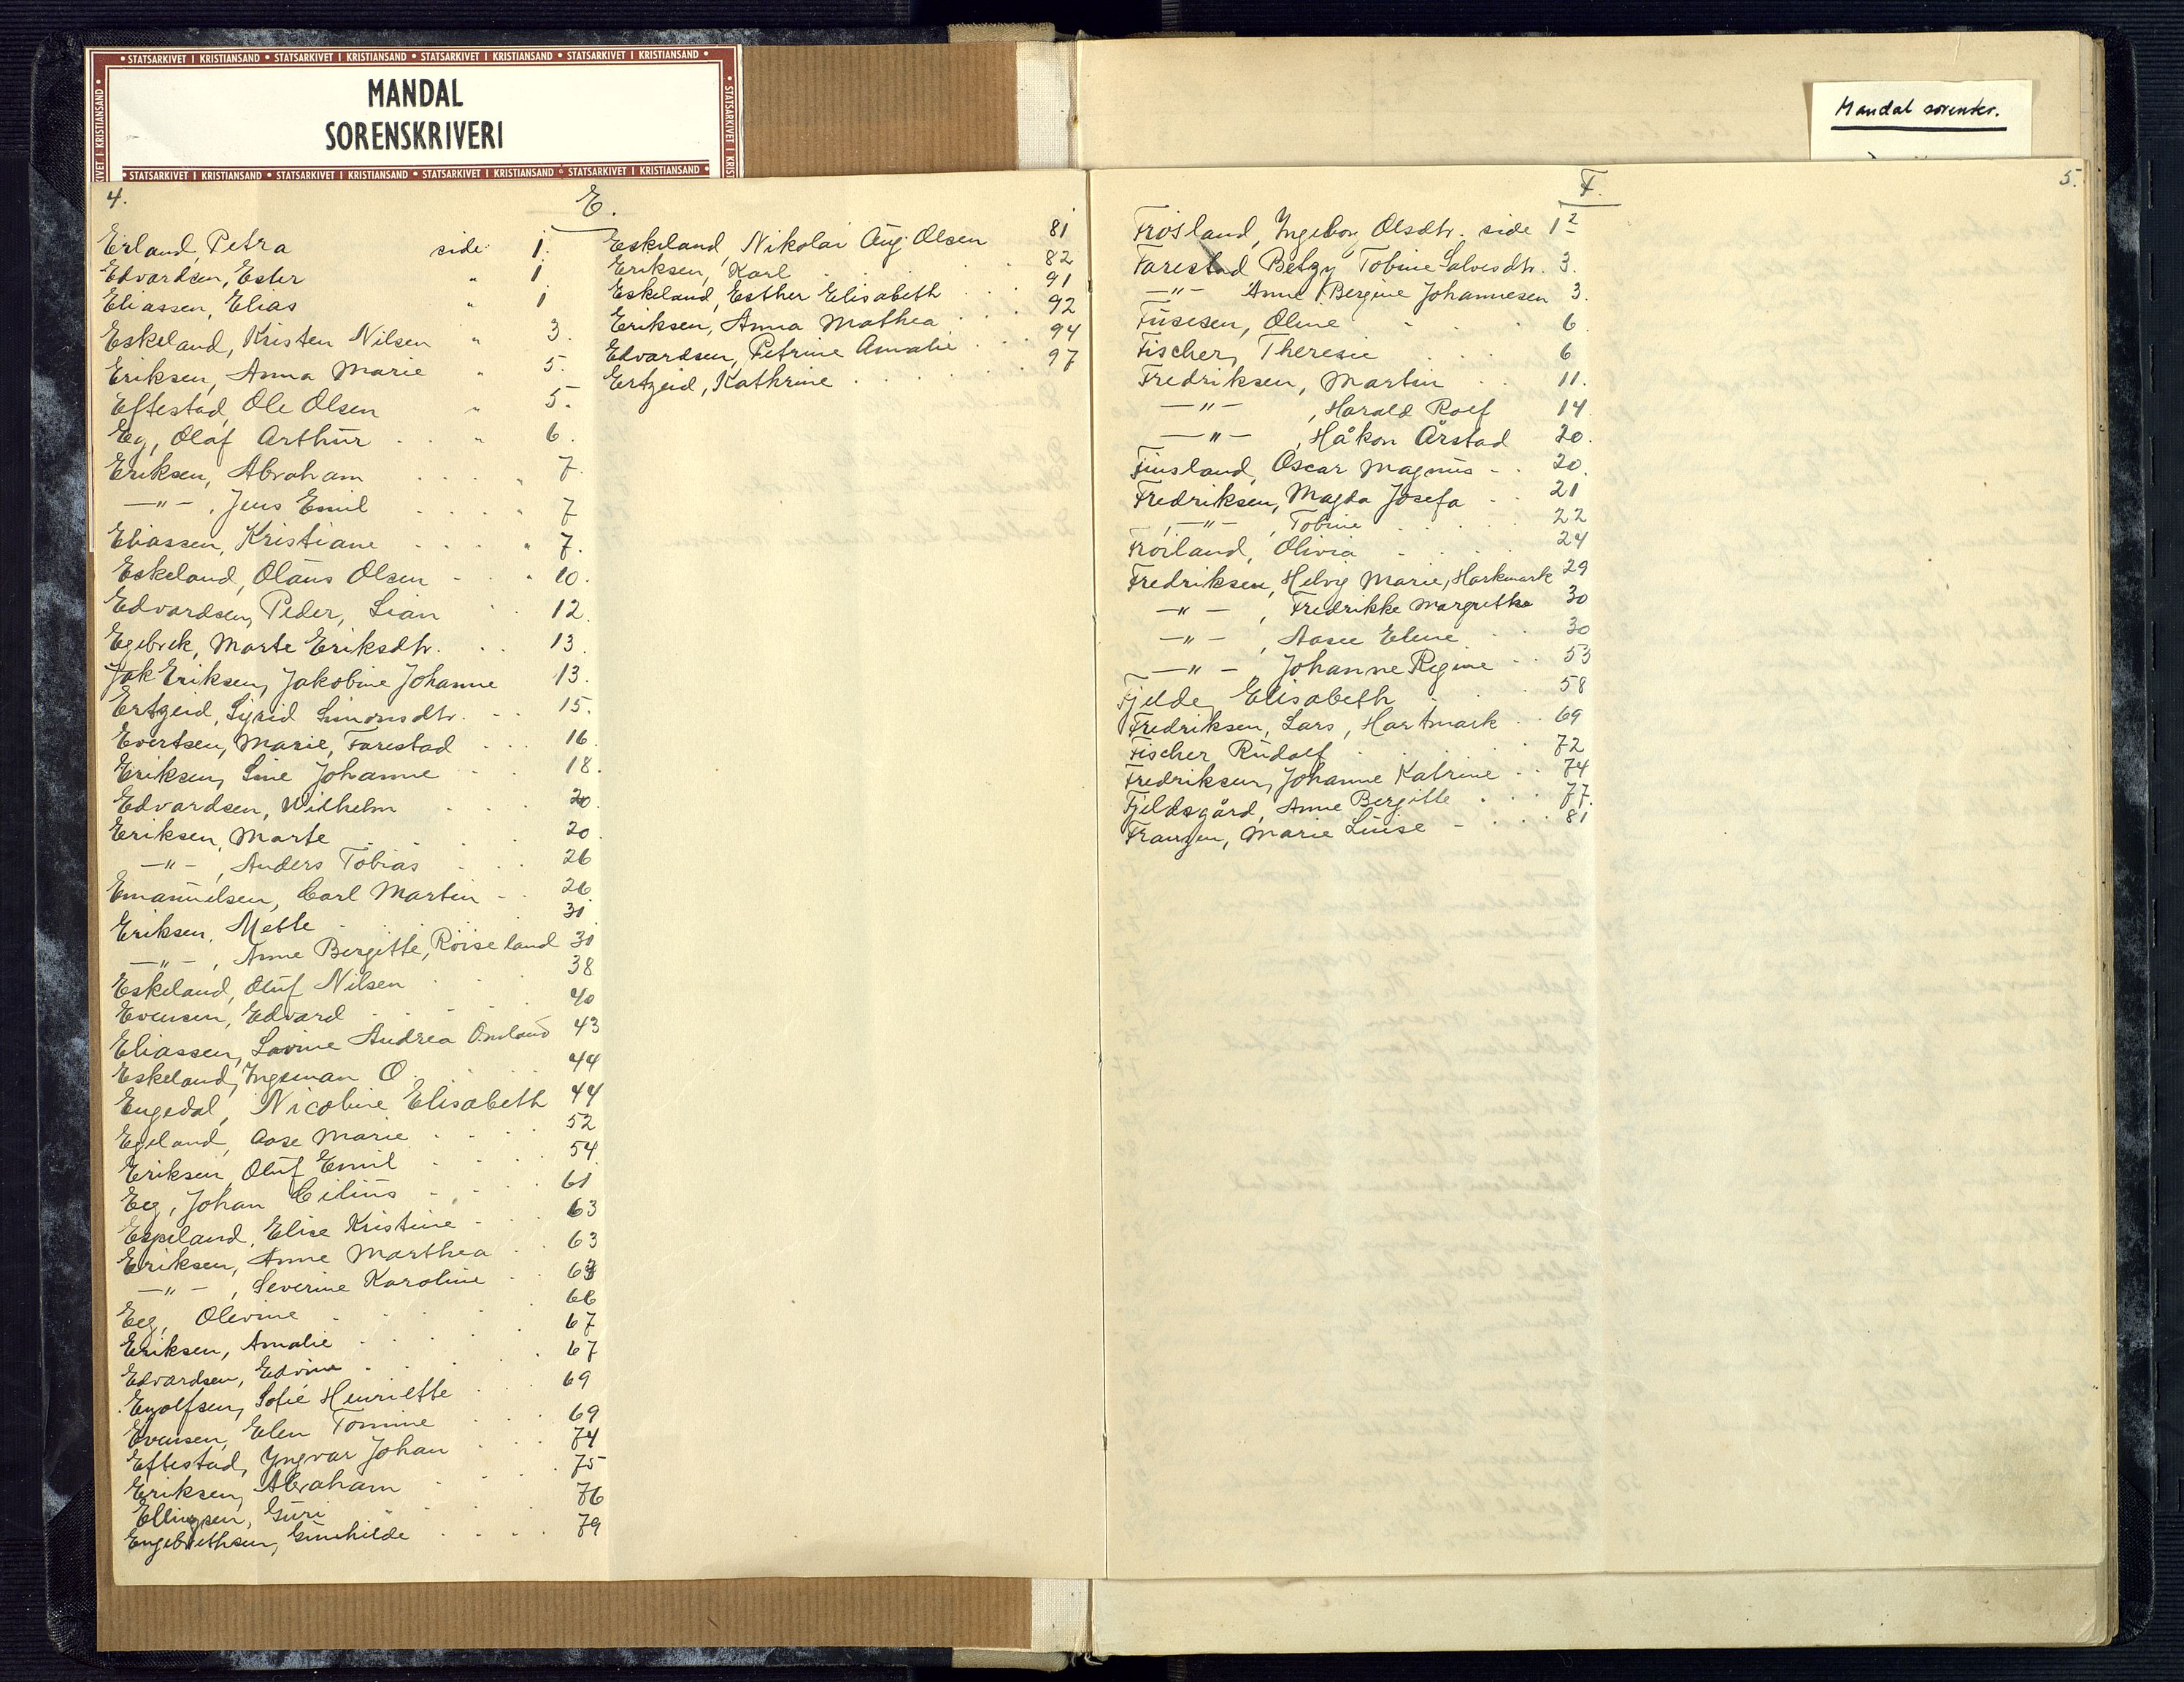 • STATSARKIVET I KRISTIANSAND • STATSARKIVET I KRISTIANSAND • STATSARKIVET I KRISTIANSAND • STATSARKIVET I KRISTIANSAND •
MANDAL
SORENSKRIVERI
• STATSARKIVET I KRISTIANSAND • STATSARKIVET I KRISTIANSAND • STATSARKIVET I KRISTIANSAND • STATSARKIVET I KRISTIANSAND
4.
E.
Erland, Petra side 1.
Edvardsen, Ester " 1
Eliassen, Elias " 1
Eskeland, Kristen Nilsen " 3.
Eriksen, Anna Marie " 5.
Eftestad, Ole Olsen " 5.
Eg, Olaf Arthur . . " 6.
Eriksen, Abraham . . . . " 7.
—"— , Jens Emil . . . . " 7
Eliassen, Kristiane . . . . " 7.
Eskeland, Olaus Olsen - . " 10.
Edvardsen, Peder, Lian . . 12.
Egebrek, Marte Eriksdtr. . . 13.
Eriksen, Jakobine Johanne 13.
Ertzeid, Sigrid Simonsdtr. . . . 15.
Evertsen, Marie, Farestad . . . 16.
Eriksen, Sine Johanne . . 18.
Edvardsen, Wilhelm . . . 20.
Eriksen, Marte . . . . 20.
—"— , Anders Tobias . . . 26
Emanuelsen, Carl Martin - . . 26
Eriksen, Mette . . . 31
—"— , Anne Bergitte, Röiseland 31
Eskeland, Oluf Nilsen . . . 38
Evensen, Edvard . . . . 40
Eliassen, Lovine Andrea Omland 43
Eskeland, Ingeman O. . . 44
Engedal, Nicoline Elisabeth 44
Egeland, Aase Marie . . . . 52
Eriksen, Oluf Emil . . . . 54
Eeg, Johan Cilius . . . . 61
Espeland, Elise Kristine - . . 63
Eriksen, Anne Marthea . . 63
—"— , Severine Karoline . . 63
Eeg, Olevine . . . . 66
Eriksen, Amalie . . . . 67
Edvardsen, Edvine . . . . 67
Eyolfsen, Sofie Henriette . . 69
Evensen, Elen Tomine . . . 69
Eftestad, Yngvar Johan . . . 74
Eriksen, Abraham . . . 75
Ellingsen, Guri . . . . 76
Engebrethsen, Gunhilde . . . . 79
Eskeland, Nikolai Aug. Olsen 81
Eriksen, Karl . . . . 82
Eskeland, Esther Elisabeth . . . 91
Eriksen, Anna Mathea . . . 92
Edvardsen, Petrine Amalie . . . 94
Ertzeid, Kathrine . . . . . . 97
Mandal sorenskr.
F.
5.
Frösland, Ingeborg Olsdtr. side 1
Farestad Betzy Tobine Salvesdtr. 3.
—"— Anne Bergine Johannesen 3.
Oline . . . 6.
Fischer, Theresie . . . 6
Fredriksen, Martin . . 11.
—"— , Harald Rolf 14
—"— , Håkon Årstad 20.
Finsland, Oscar Magnus - . 20.
Fredriksen, Magda Josefa . . 21
—"— , Tobine . . . . 22
Fröiland, Olivia . . . . 24
Fredriksen, Helvig Marie, Harkmark 29
—"— , Fredrikke Margrethe 30
—"— , Aasee Eline . . 30
—"— Johanne Regine . . 53
Fjelde, Elisabeth . . . 58
Fredriksen, Lars, Hartmark . . 69
Fischer Rudolf . . . 72
Fredriksen, Johanne Katrine . . 74
Fjeldsgård, Anne Bergitte . . . 77.
Franzen, Marie Luise - . . . 81